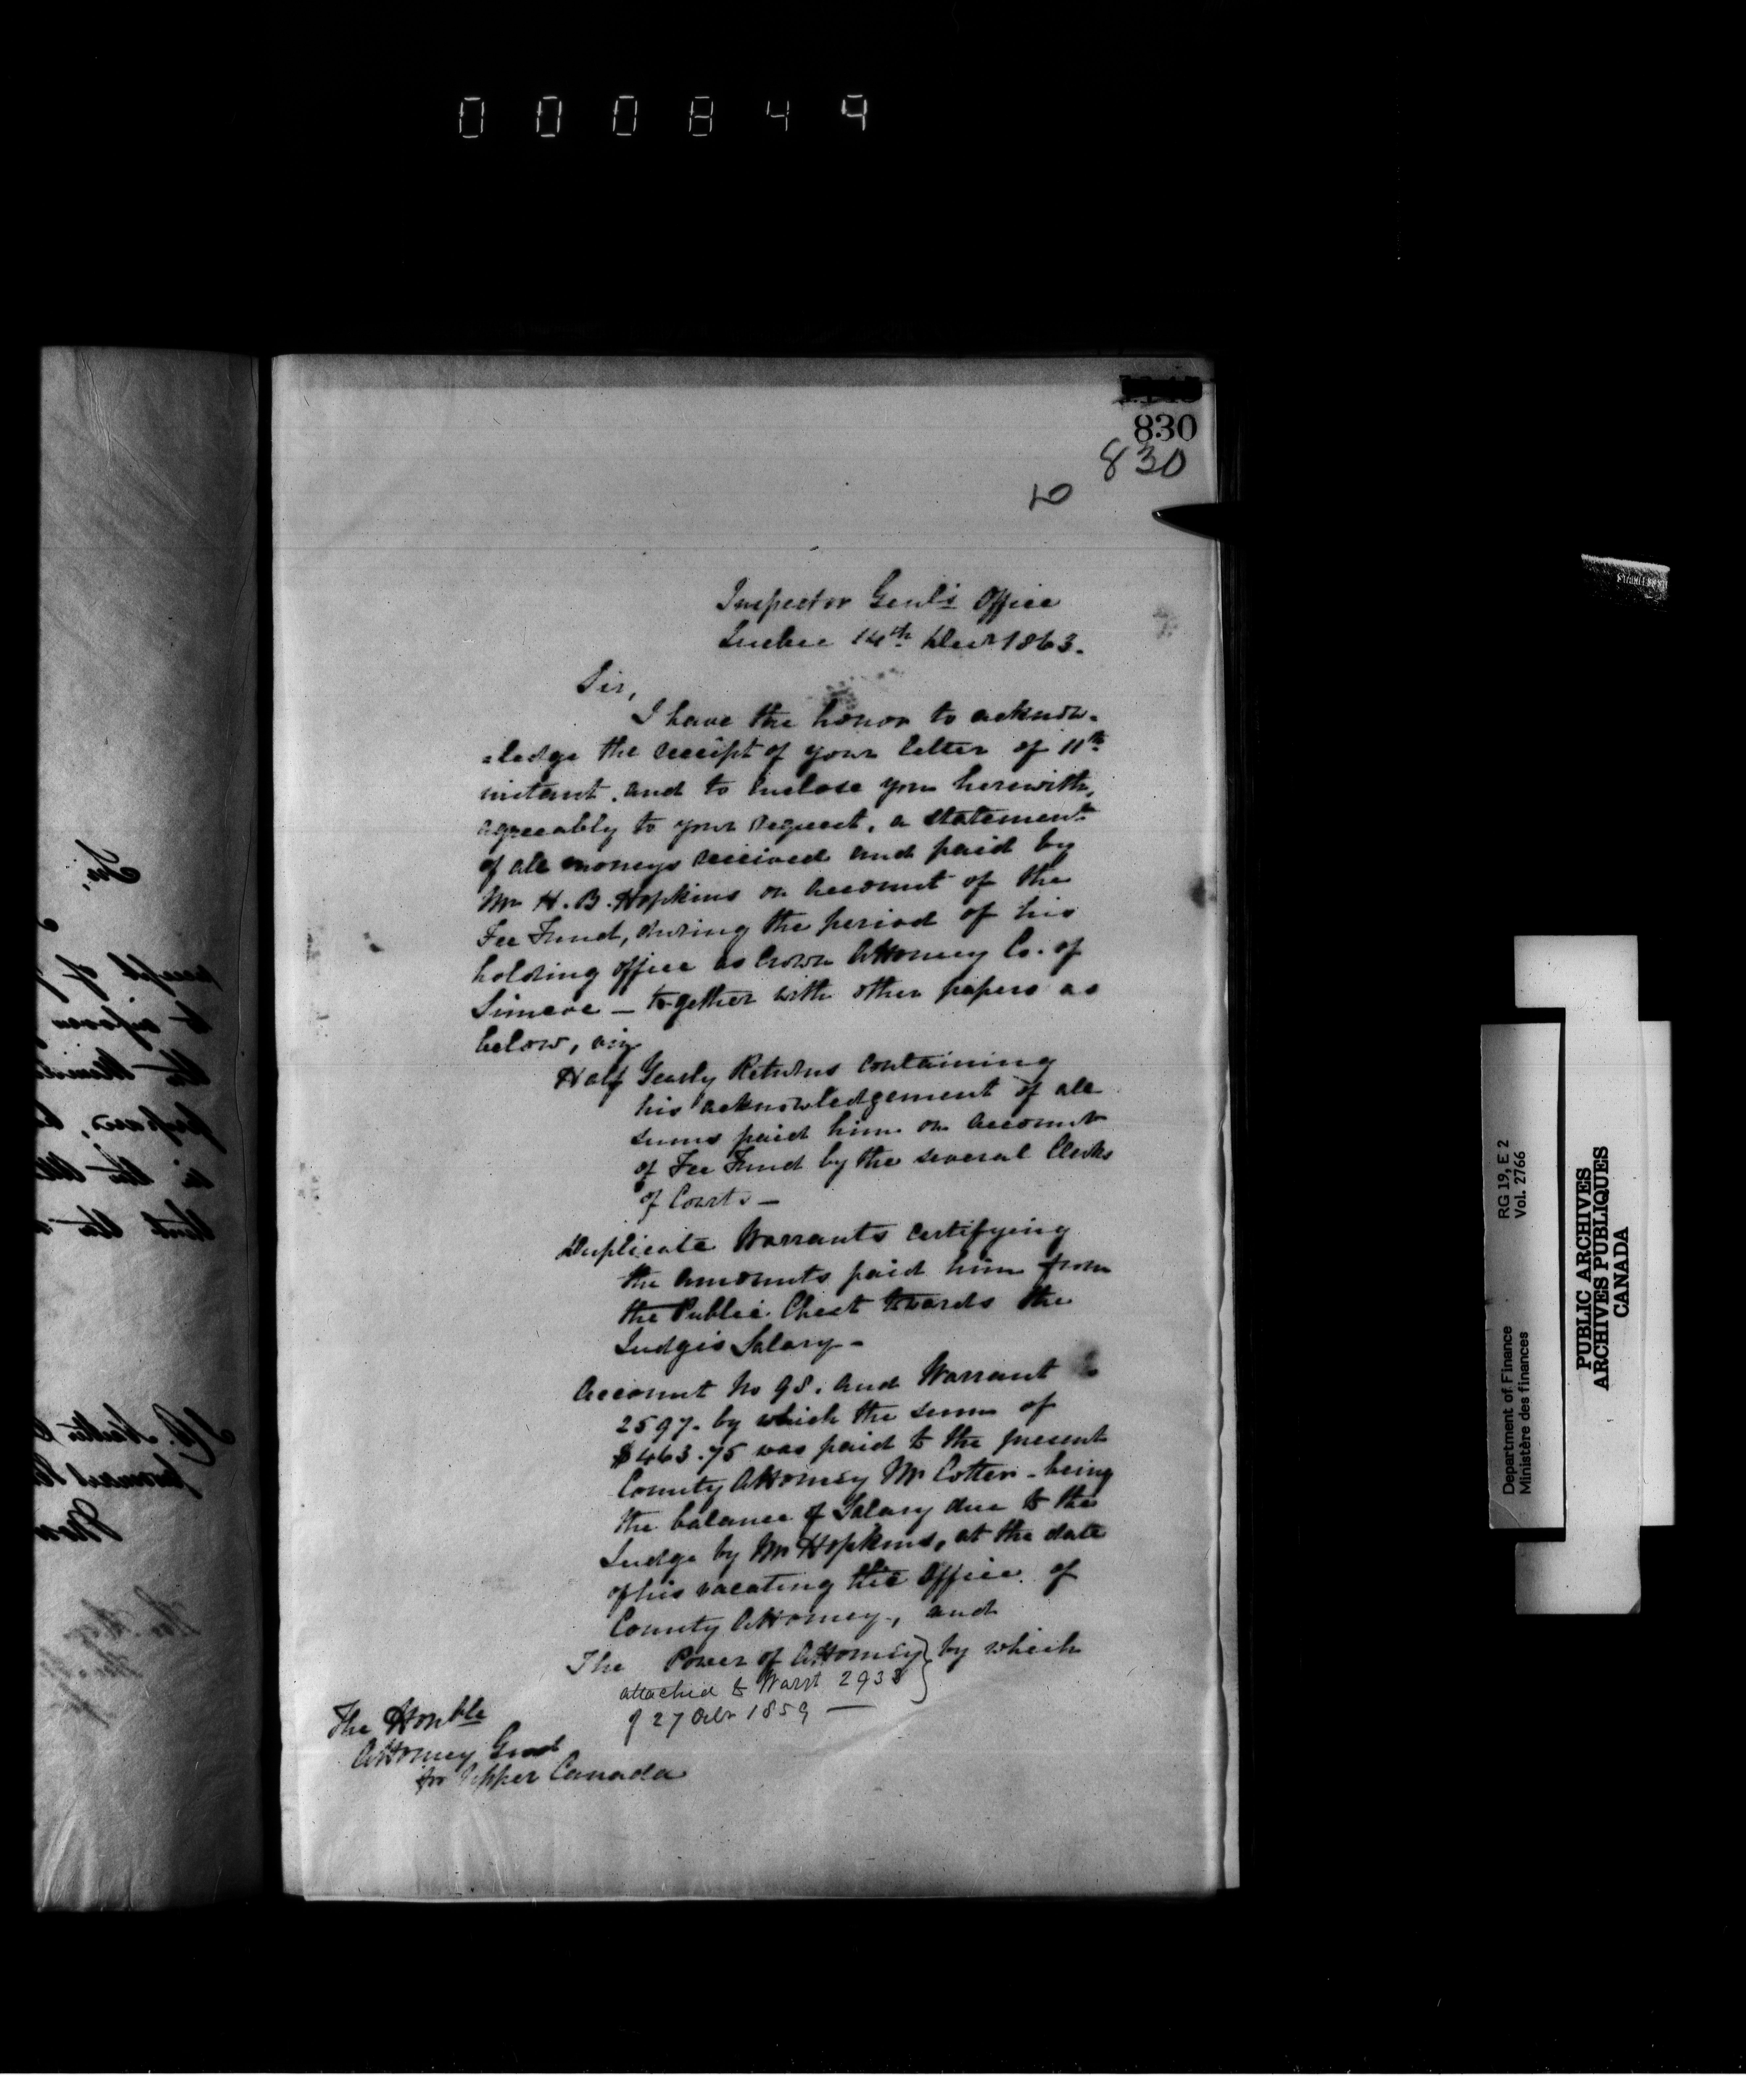 000849
830
830
10
Inspector Genl's Office
Quebec 14th Decr 1863.
Sir,
I have the honor to acknow-
=ledge the receipt of your letter of 11th
instant, and to inclose you herewith,
agreeably to your request, a statement
of all moneys received and paid by
Mr H. B. Hopkins on account of the
Fee Fund, during the period of his
holding office as Crown Attorney Co. of
Simcoe – together with other papers as
below, viz
Half Yearly Returns containing
his acknowledgement of all
sums paid him on account
of Fee Fund by the several Clerks
of Courts –
Duplicate Warrants certifying
the amounts paid him from
the Public Chest towards the
Judges Salary –
Account No 98. and Warrant
2597. by which the sum of
$463.75 was paid to the present
County Attorney Mr Cotter – being
the balance of Salary due to the
Judge by Mr Hopkins, at the date
of his vacating the Office of
County Attorney, and
The Power of Attorney } by which
attached to Warrt 2938
of 27 Octr 1859 —
The Honble
Attorney Genl
for Upper Canada
Sir,
receipt of
the
in the
RG 19, E 2
Vol. 2766
Department of Finance
Ministère des finances
PUBLIC ARCHIVES
ARCHIVES PUBLIQUES
CANADA